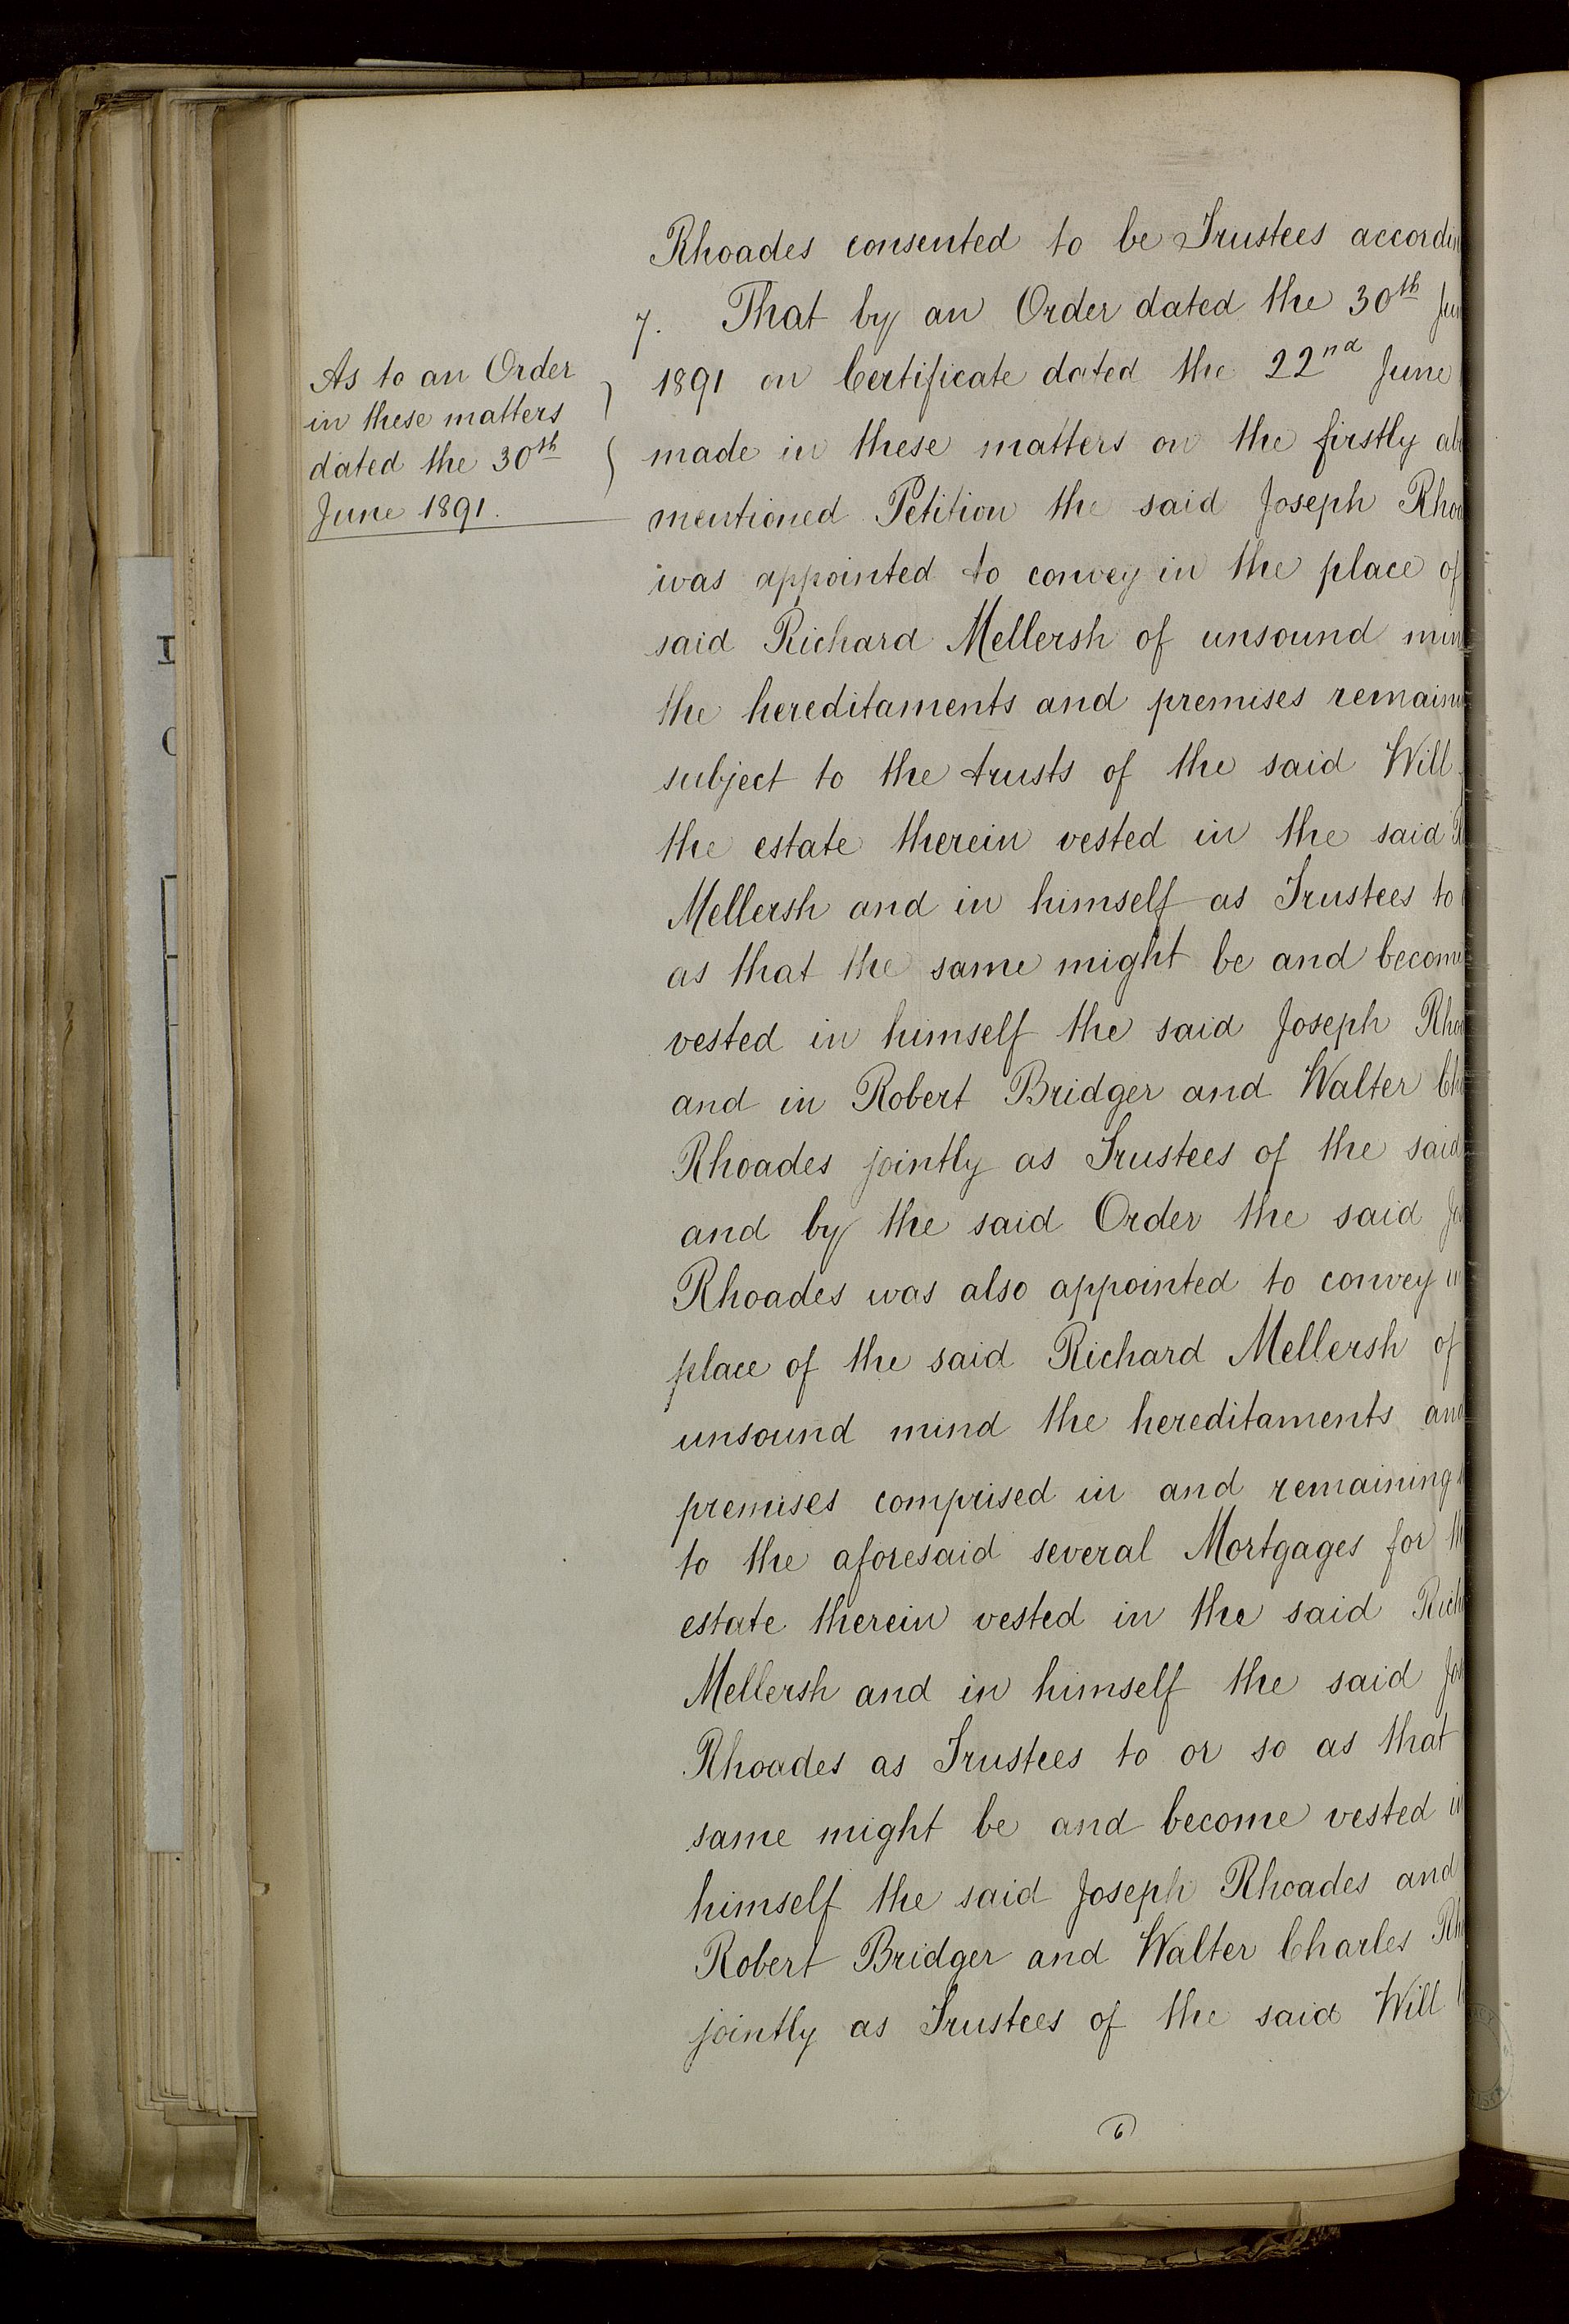 As to an Order
in these matters
dated the 30th
June 1891.
Rhoades consented to be Trustees accordin
7. That by an Order dated the 30th Jun
1891 on Certificate dated the 22nd June
made in these matters on the firstly ab
mentioned Petition the said Joseph Rhoa
was appointed to convey in the place of
said Richard Mellersh of unsound min
the hereditaments and premises remain
subject to the trusts of the said Will
the estate therein vested in the said
Mellersh and in himself as Trustees to
as that the same might be and become
vested in himself the said Joseph Rhoa
and in Robert Bridger and Walter Ch
Rhoades jointly as Trustees of the said
and by the said Order the said Jo
Rhoades was also appointed to convey in
place of the said Richard Mellersh of
unsound mind the hereditaments and
premises comprised in and remaining
to the aforesaid several Mortgages for th
estate therein vested in the said Rich
Mellersh and in himself the said Jos
Rhoades as Trustees to or so as that
same might be and become vested in
himself the said Joseph Rhoades and
Robert Bridger and Walter Charles Rh
jointly as Trustees of the said Will
6